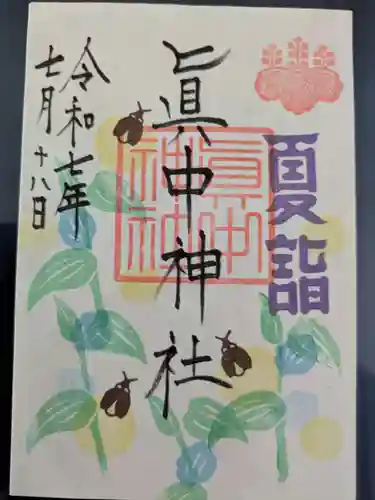 夏詣
眞中神社
眞中神社
令和七年
七月十八日